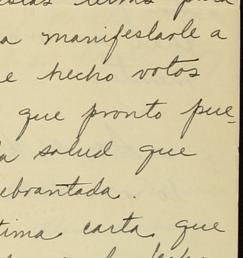 para
a manifestarle a
e hecho votos
que pronto pue-
la salud que
ebrantada.
tima carta que